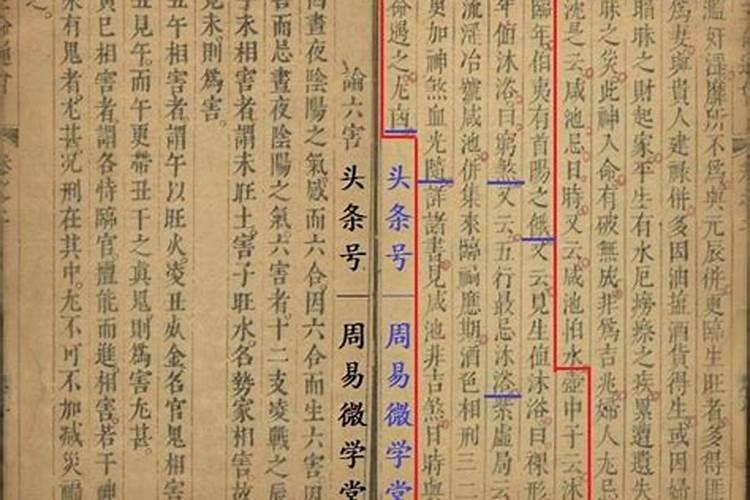 濫奸淫靡所不爲與元辰併更臨生旺者多得匪
爲妻與貴人建祿併多因油鹽酒貨得生或因婦
暗昧之財起家平生有水厄癆瘵之疾累遭遺失
昧之災此神入命有破無成非爲吉兆婦人尤忌
沈是云咸池忌日時又云咸池怕水壺中子云沐
臨年伯夷有首陽之餓又云見生値沐浴曰裸形
年俯沐浴曰窮煞又云五行最忌沐浴柰虛局云
流淫冶號咸池併集來臨禍應期酒色相刑三二
更加神煞血光隨詳諸書見咸池非吉煞日時與
命遇之尤凶
头条号|周易微学堂
論六害
头条号|周易微学堂
晝夜陰陽之氣感而六合因六合而生六害
者而忌晝夜陰陽之氣六害者十二支凌戰之辰
子未相害者謂未旺土害子旺水名勢家相害故
見未則爲害。
丑午相害者謂午以旺火凌丑死金名官鬼相害
丑見午而午更帶丑干之真鬼則爲害尤甚。
寅巳相害者謂各恃臨官擅能而進相害若干神
來有鬼者尤甚况刑在其中尤不可不加減災福
之。